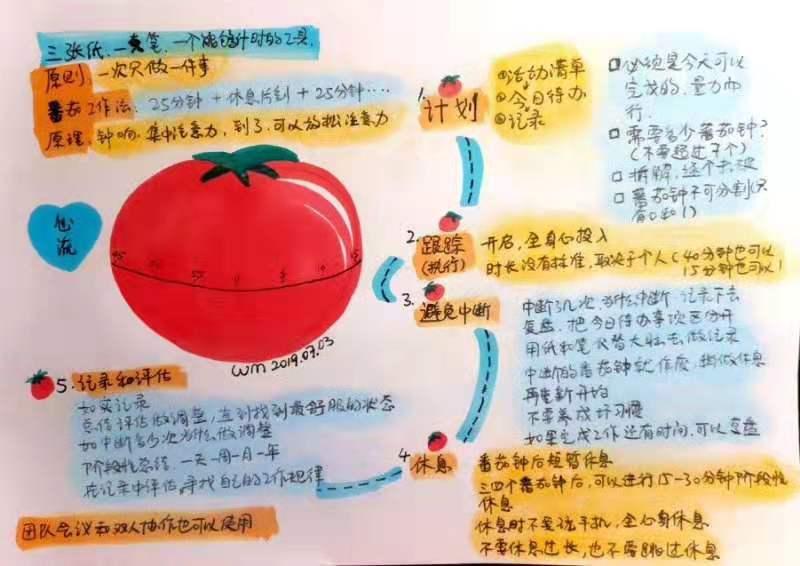 三张纸,一支笔,一个能够计时的工具.
原则:一次只做一件事
番茄工作法:25分钟+休息片刻+25分钟…
原理:钟响.集中注意力,到了.可以放松注意力
心流
45 50 55 0 5 10 15
wm 2019.07.03
1.计划
①活动清单
②今日待办
③记录
必须是今天可以
完成的,量力而
行.
需要多少番茄钟?
(不要超过7个)
拆解,逐个
番茄钟不可分割(只
有0和1)
2.跟踪
(执行)
开启,全身心投入
时长没有标准,取决于个人(40分钟也可以
15分钟也可以)
3.避免中断
中断了几次,为什么中断 记录下去
复盘.把今日待办事项区分开
用纸和笔代替大脑去做记录
中断的番茄钟就作废,稍做休息
再重新开始
不要养成坏习惯
如果完成工作还有时间,可以复盘
4.休息
番茄钟后短暂休息
三四个番茄钟后,可以进行15-30分钟阶段性
休息
休息时不要玩手机,全心身休息
不要休息过长,也不要跳过休息
5.记录和评估
如实记录
总结评估做调整,直到找到最舒服的状态
如中断多少次为什么,做调整
阶段性总结.一天一周一月一年
在记录中评估,寻找自己的工作规律
团队会议和双人协作也可以使用